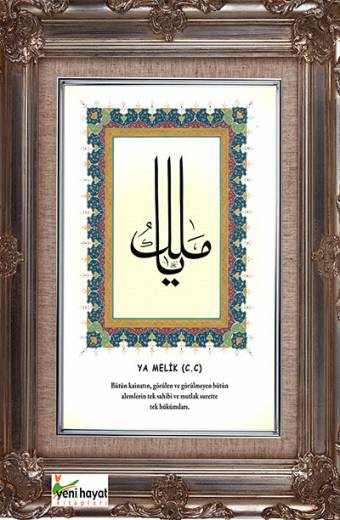 يا ملك
YA MELİK (C.C)
Bütün kainatın, görülen ve görülmeyen bütün
alemlerin tek sahibi ve mutlak surette
tek hükümdarı.
yeni hayat
kitapları